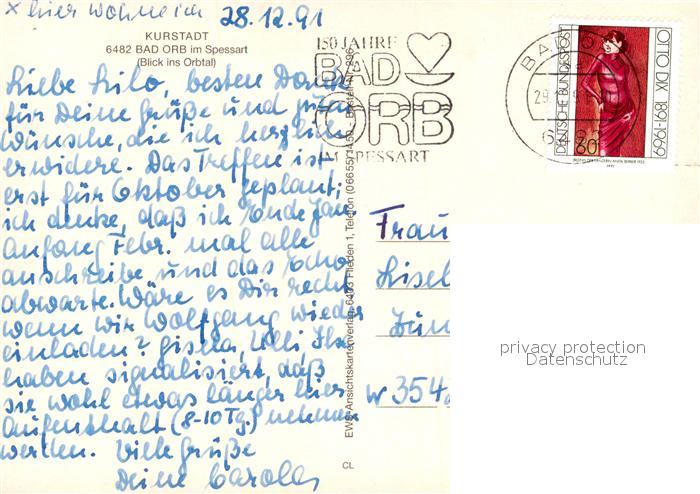 x hier wohne ich 28.12.91
KURSTADT
6482 BAD ORB im Spessart
(Blick ins Orbtal)
Liebe Lilo, besten Dank
für Deine Grüße und guten
Wünsche, die ich herzlich
erwidere. Das Treffen ist
erst für Oktober geplant;
ich denke, daß ich Ende Jan
Anfang Febr. mal alle
anschreibe und das Echo
abwarte. Wäre es Dir recht
wenn wir Wolfgang wieder
einladen? Gisela, Ulli, Ilse
haben signalisiert, daß
sie wohl etwas länger hier
Aufenthalt (8-10 Tg.) nehmen
werden. Viele Grüße
Deine Carola
150 JAHRE
BAD
ORB
IM SPESSART
EWS Ansichtskartenverlag, 6403 Flieden 1, Telefon (06655)
CL
BAD
29.
DEUTSCHE BUNDESPOST
OTTO DIX 1891-1969
60
Frau
Lisel
W 354
privacy protection
Datenschutz